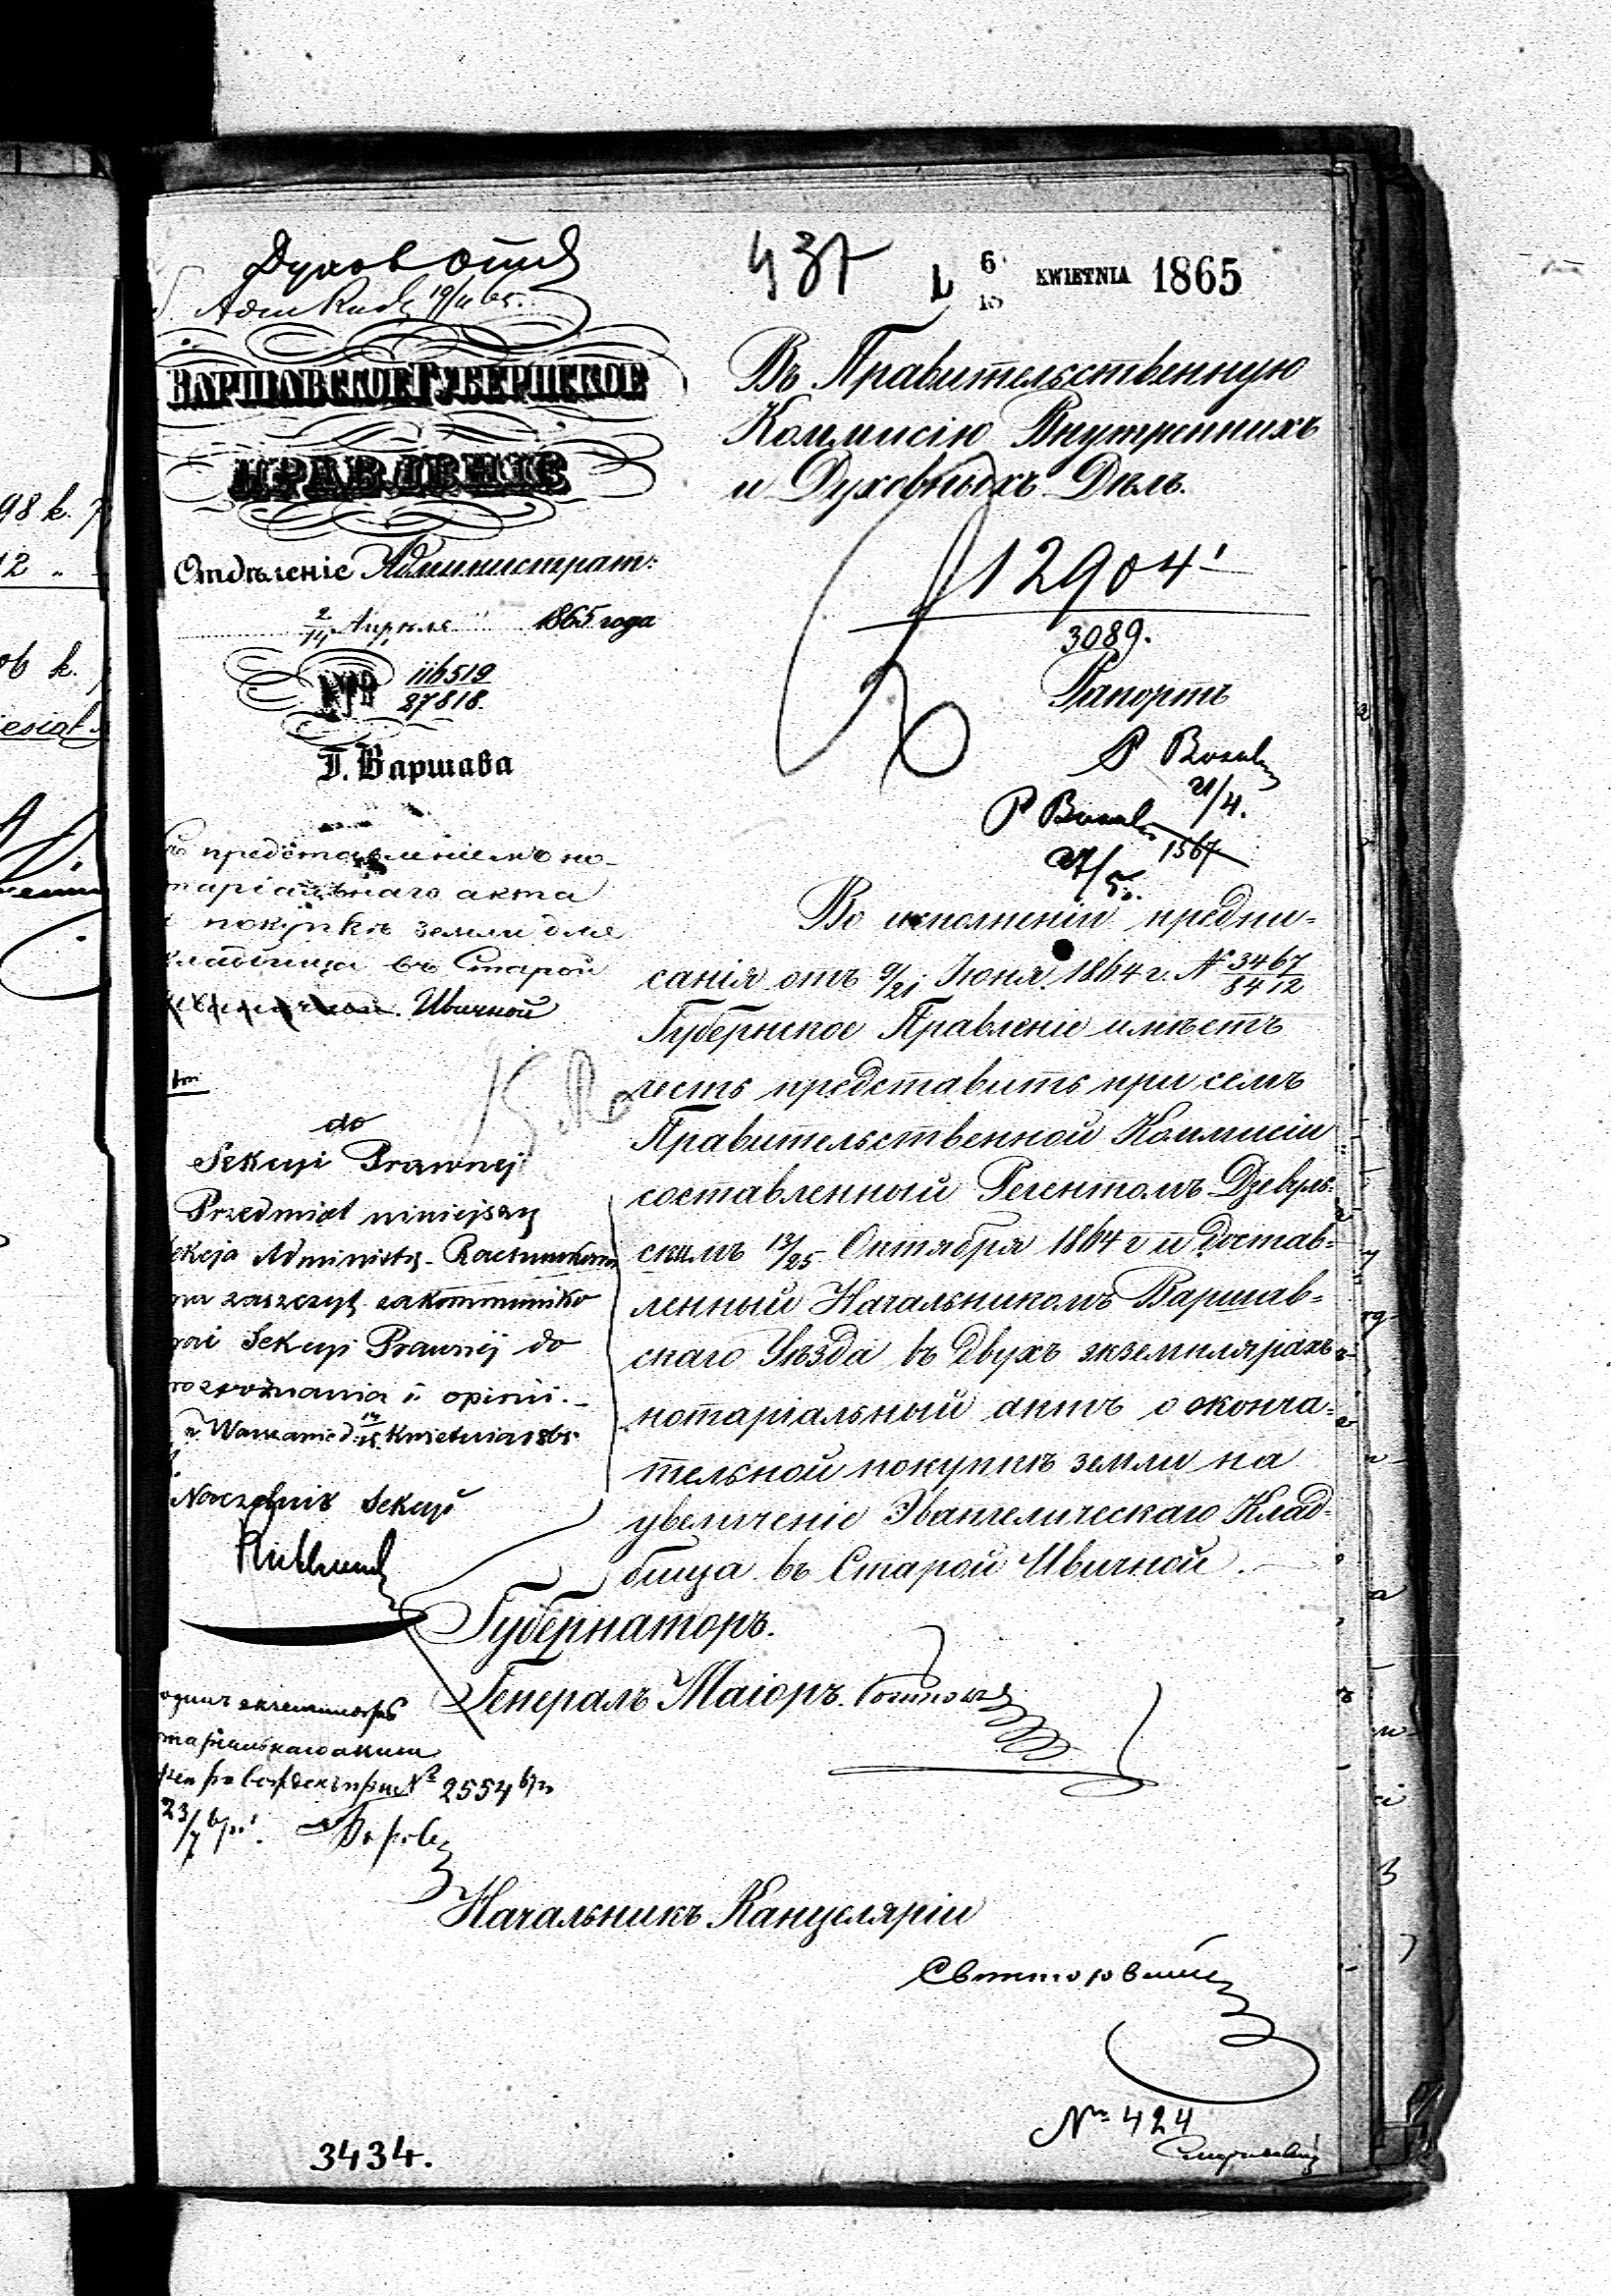 Духов отд
437
6/18 KWIETNIA 1865
ВАРШАВСКОЕ ГУБЕРНСКОЕ
ПРАВЛЕНІЕ
Отдѣленіе Администрат:
2/14 Апрѣля 1865 года
№ 116519/27818.
Г. Варшава
предста­вленіемъ но-
таріальнаго акта
покупкѣ земли для
кладбища въ Старой
Ивичной
do
Sekcyi Prawnej
Przedmiot niniejszy
Sekcja Administ.
ma zaszczyt zakommuniko
wać Sekcyi Prawnej do
rozpoznania i opinii.
w Warszawie d. Kwietnia 1865
Naczelnik Sekcyi
одинъ экземпляръ
нотаріальнаго акта
при № 2554
23/7
Въ Правительственную
Коммисію Внутреннихъ
и Духовныхъ Дѣлъ.
12904
3089.
Рапортъ
21/4.
1567
27/5.
Во исполненіи предпи-
санія отъ 9/21 Іюня 1864 г. № 3467/8412
Губернское Правленіе имѣетъ
честь представить при семъ
Правительственной Коммисіи
составленный Регентомъ Дзевуль-
скимъ 13/25 Октября 1864 г и достав-
ленный Начальникомъ Варшав-
скаго Уѣзда въ двухъ экземплярахъ
нотаріальный актъ о оконча-
тельной покупкѣ земли на
увеличеніе Эвангелическаго Клад-
бища въ Старой Ивичной.
Губернаторъ.
Генералъ Маіоръ.
Начальникъ Канцеляріи
№ 424
3434.
98 k.
12 "